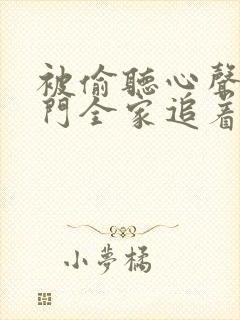 被偷聽心聲
門全家追着
小夢橘